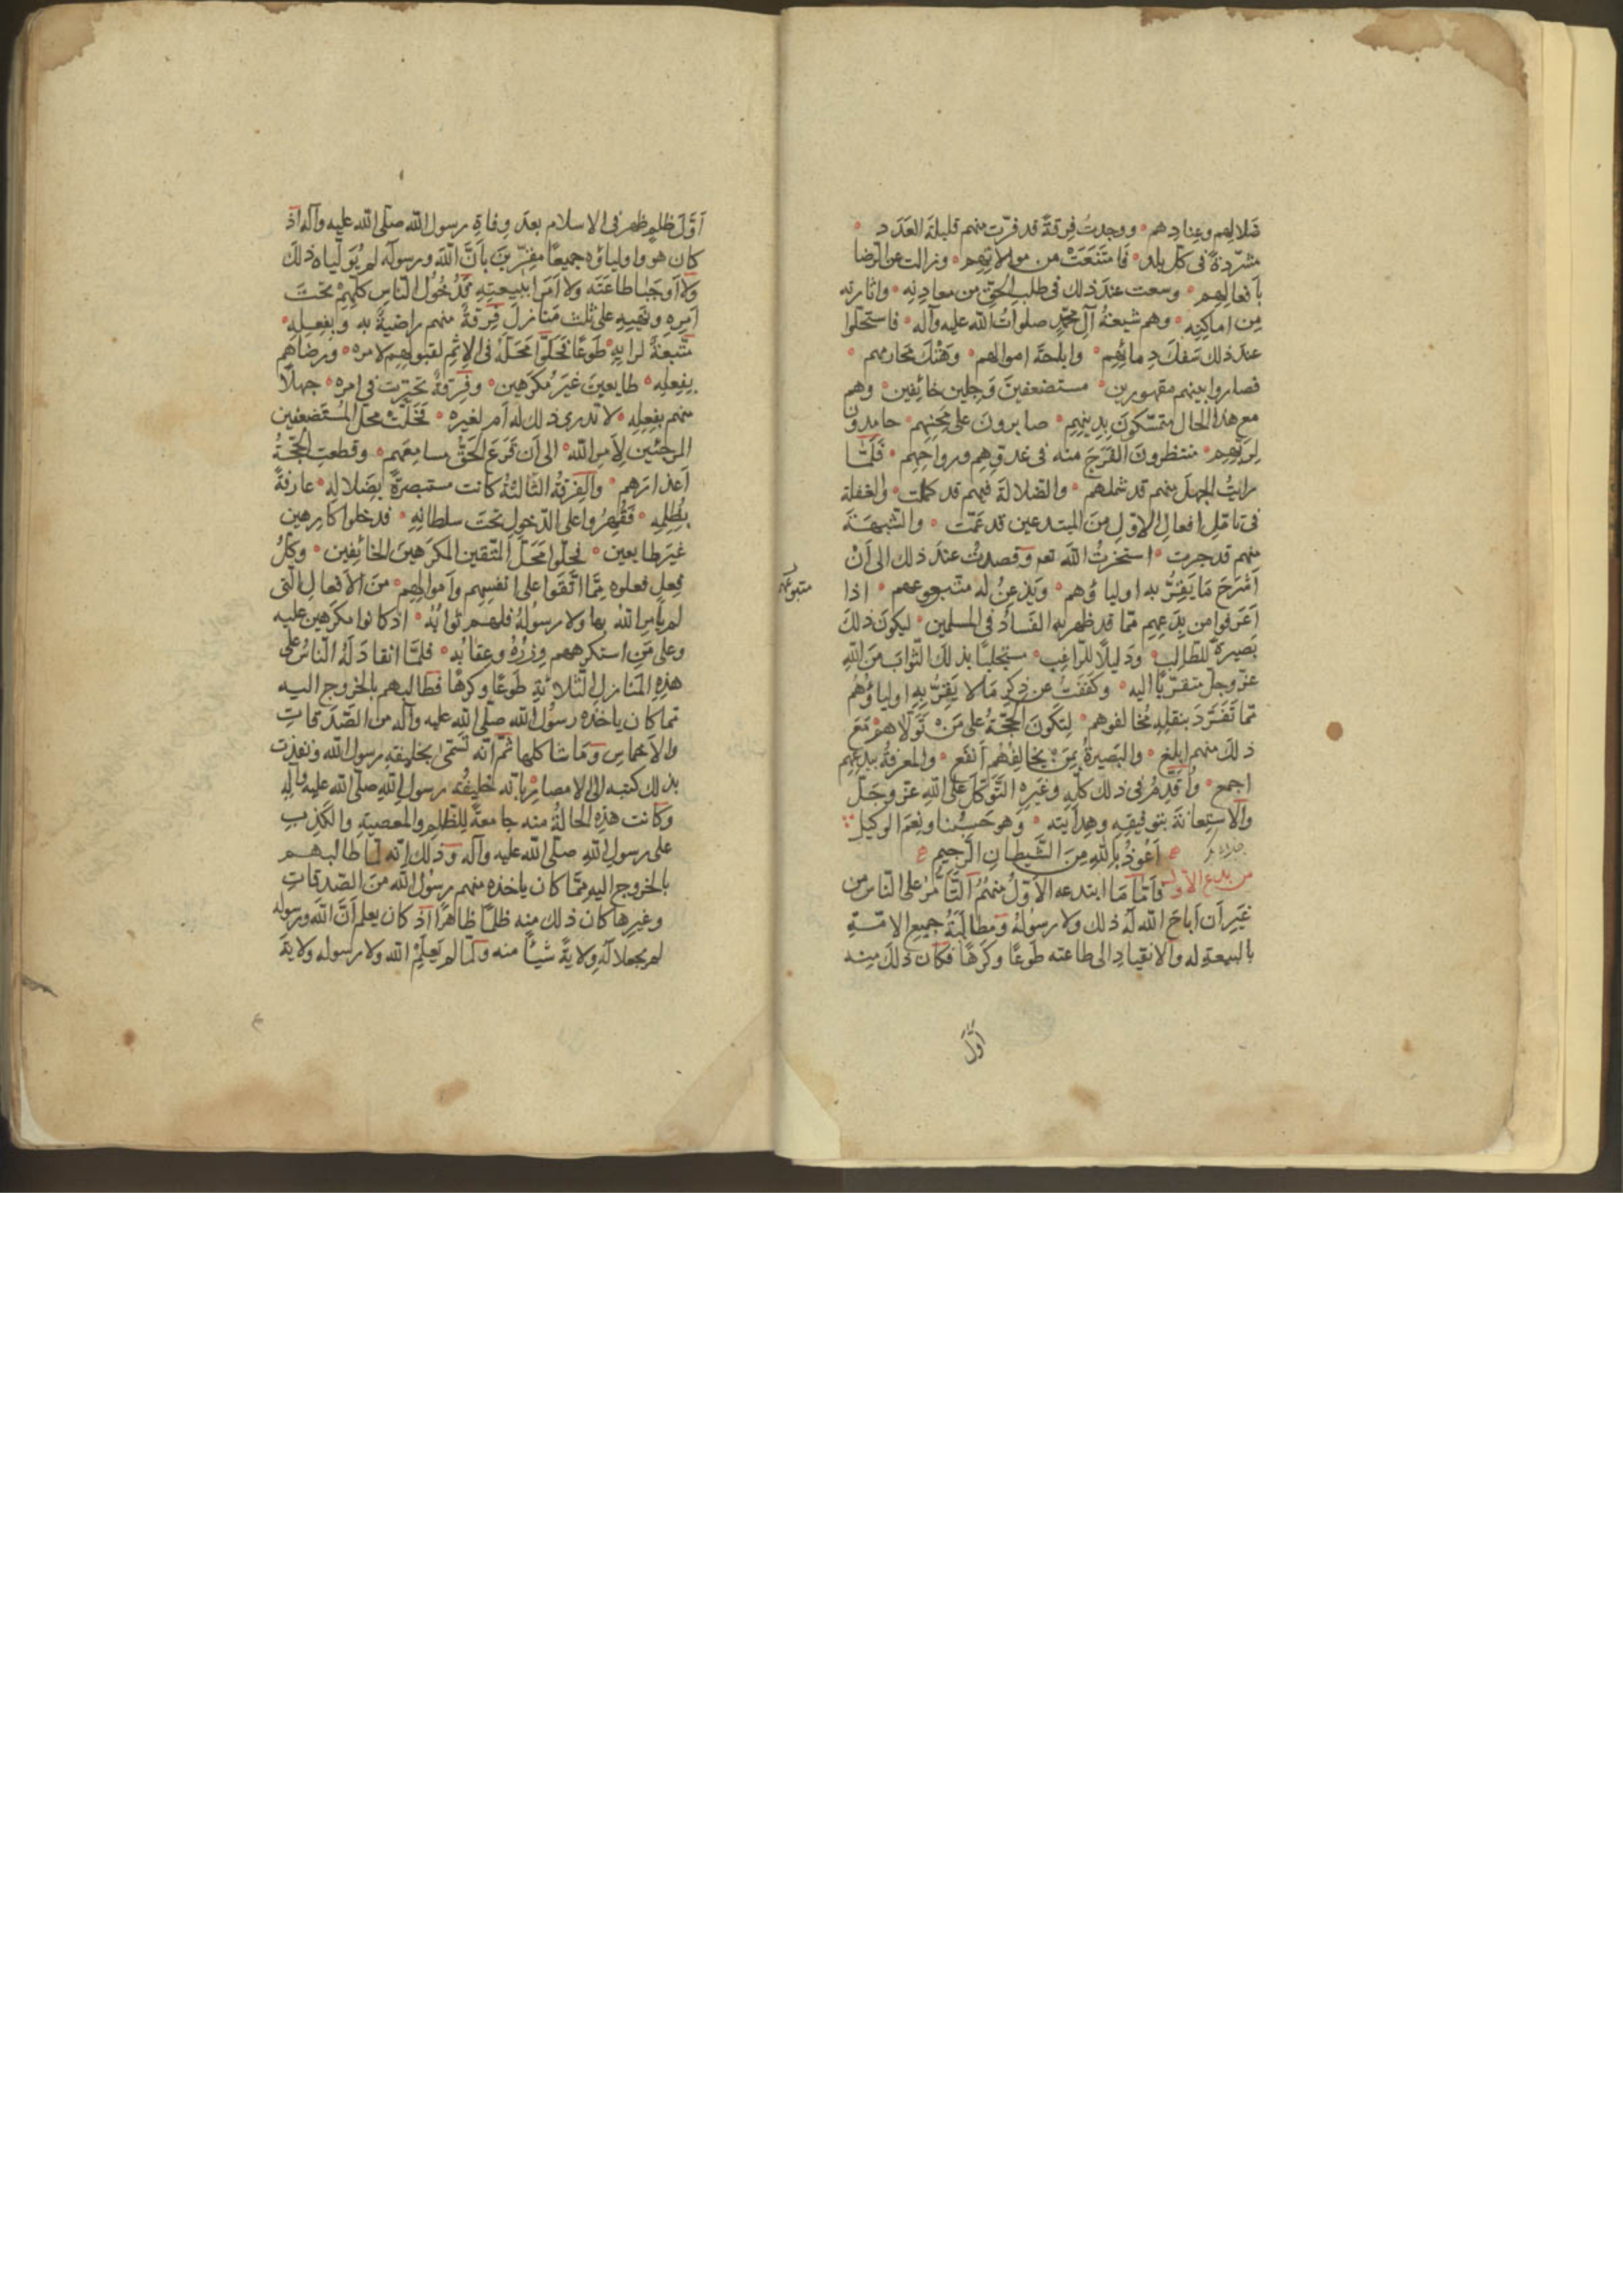 ضَلالِهِم وعِنادِهم ووجدتُ فِرقةً قد فرّت منهم قليلةَ العَدَد
مشرّدةً فى كلّ بلد فَامتَنَعَتْ من موالاتِهِم وزالت عن الرّضا
بِاَفعالِهِم وسعت عندَ ذلك فى طلب الحقّ من معادنِه واثارته
مِن اماكِنِه وهم شيعةُ آلِ محمّدٍ صلواتُ الله عليه وآله فاستحلّوا
عندَ ذلك سَفكَ دِمائِهِم واباحةَ اموالهم وهَتْكَ محارمهم
فصاروا بينهم مقهورين مستضعفينَ وَجِلين خائِفين وهم
مع هذا الحال متمسّكونَ بِدِينِهِم صابرونَ على مِحَنِهِم حامِدونَ
لِرَبِّهِم منتظرونَ الفَرَجَ منه فى غدوّهِم ورواحِهِم فَلَمّا
رايتُ الجهلَ منهم قد شملهم والضلالةَ فيهم قد كملت والغفلة
فى تامّلِ افعالِ الاوّلِ مِنَ المبتدعين قد عَمَّت والشّبهَةَ
منهم قد جرت استخرتُ اللهَ تعـ وقصدتُ عندَ ذلك الى اَنْ
اَشرَحَ مَا يَقِرُّ به اولياؤهم ويَذعِنُ له متّبعوهم اذا
متبوعهم
اَعرَفوا من بِدَعِهِم ممّا قد ظهر به الفَسادُ فى المسلمين ليكونَ ذلكَ
بَصِيرَةً للطّالِبِ ودَليلًا للرّاغب مستجلبًا بذلكَ الثّوابَ مِنَ اللهِ
عزّ وجلّ متقرّبًا اليه وكَفَفتُ عن ذكرِ مَا لا يَقِرُّ بِهِ اولياؤُهُم
ممّا تَفَرَّدَ بنقلِهِ مُخالفوهم لِتكونَ الحجّةُ على مَنْ تَوَلّاهم مَعَ
ذلكَ منهم ابلغ والبَصيرةُ بِمَنْ يخالِفُهُم اَنفع والمعرفةُ ببِدَعِهِم
اجمع واُقَدِّمُ فى ذلك كلّهِ وغيرِهِ التّوكّلَ على اللهِ عزّ وجَلّ
والاستعانةَ بتوفيقِهِ وهِدايتِه وهو حَسبُنا ونِعمَ الوكيل
اَعُوذُ بِاللهِ مِنَ الشّيطانِ الرّجيمِ
من بدع الاول فاَمّا مَا ابتدعه الاَوّلُ مِنهُمُ التَّاَمُّرُ على النّاسِ من
غيرِ اَن اَباحَ الله لَه ذلك ولا رسولُهُ ومطالبَةُ جميعِ الامّةِ
بالبيعةِ له والانقيادِ الى طاعته طَوعًا وكَرهًا فكان ذلكَ مِنه
اوّل
اَوّلَ ظلمٍ ظهر فى الاسلام بعد وفاةِ رسول الله صلّى الله عليه وآله اذ
كان هو واولياؤه جميعًا مقرّينَ بِاَنَّ اللهَ ورسولَه لم يُوَلّياه ذلكَ
ولا اَوجَبا طاعَتَه ولا اَمَرا ببيعتِهِ فَدُخُولُ النّاس كلّهِمْ تحتَ
اَمرِهِ ونهيِهِ على ثلث مَنَازلَ فِرقةٌ منهم راضِيةٌ به وبفِعلِه
متّبعَةٌ لرايِهِ طَوعًا فَحَلّوا مَحَلَّهُ فى الاِثمِ لقبولِهِم لامرِه ورضاهم
بِفِعلِه طايعينَ غيرَ مُكرَهين وفِرقةٌ تحيّرت فى امره جهلًا
منهم بفِعلِه لا تدرى ذلك له اَم لغيرِه فَحَلَّتْ محلّ المُستَضعفين
المرجَئين لِاَمرِ الله الى اَن قَرَعَ الحَقُّ مسامِعَهم وقطعتِ الحجّةُ
اَعذارَهم والفِرقةُ الثّالثةُ كانت مستبصرةً بِضَلالِه عارفةً
بِظُلمِه فَقُهِرُوا على الدّخولِ تحتَ سلطانِهِ فدخلوا كارهين
غيرَ طايعين فحلّوا مَحَلّ المتّقين المكرَهينَ الخائِفين وكلّ
فعلٍ فعلوه مِمّا اتّقَوا على انفسِهِم واَموالِهِم مِنَ الاَفعالِ الّتى
لم ياْمرِ اللهُ بها ولا رسولُهُ فلهم ثوابُهُ اذ كانوا مكرَهين عليه
وعلى مَنِ استكرههم وِزرُهُ وعِقابُه فلمّا انقادَ لَهُ النّاسُ على
هذِهِ المَنازلِ الثّلاثةِ طَوعًا وكرهًا فطالبهم بالخروج اليه
مما كان ياخذه رسولُ اللهِ صلّى الله عليه وآله من الصّدقاتِ
والاَخماسِ ومَا شاكلها ثمّ انّه تَسَمّى بخليفةِ رسولِ الله ونفذت
بذلك كتبه الى الامصارِ بانّه خليفةُ رسولِ اللهِ صلّى الله عليه وآلِهِ
وكانت هذِهِ الحالةُ منه جامعةً لِلظّلمِ والمعصيةِ والكَذِبِ
على رسولِ اللهِ صلّى الله عليه وآله وذلك انّه لمّا طالبهم
بالخروج اليه ممّا كان ياخذه منهم رسولُ اللهِ مِنَ الصّدقاتِ
وغيرِها كان ذلك مِنه ظلمًا ظاهرًا اذ كان يعلم اَنَّ اللهَ ورسولَه
لم يجعلا لَه وِلايةَ شيئًا منه ولمّا لم يَعلَمِ الله ولا رسوله ولايةَ